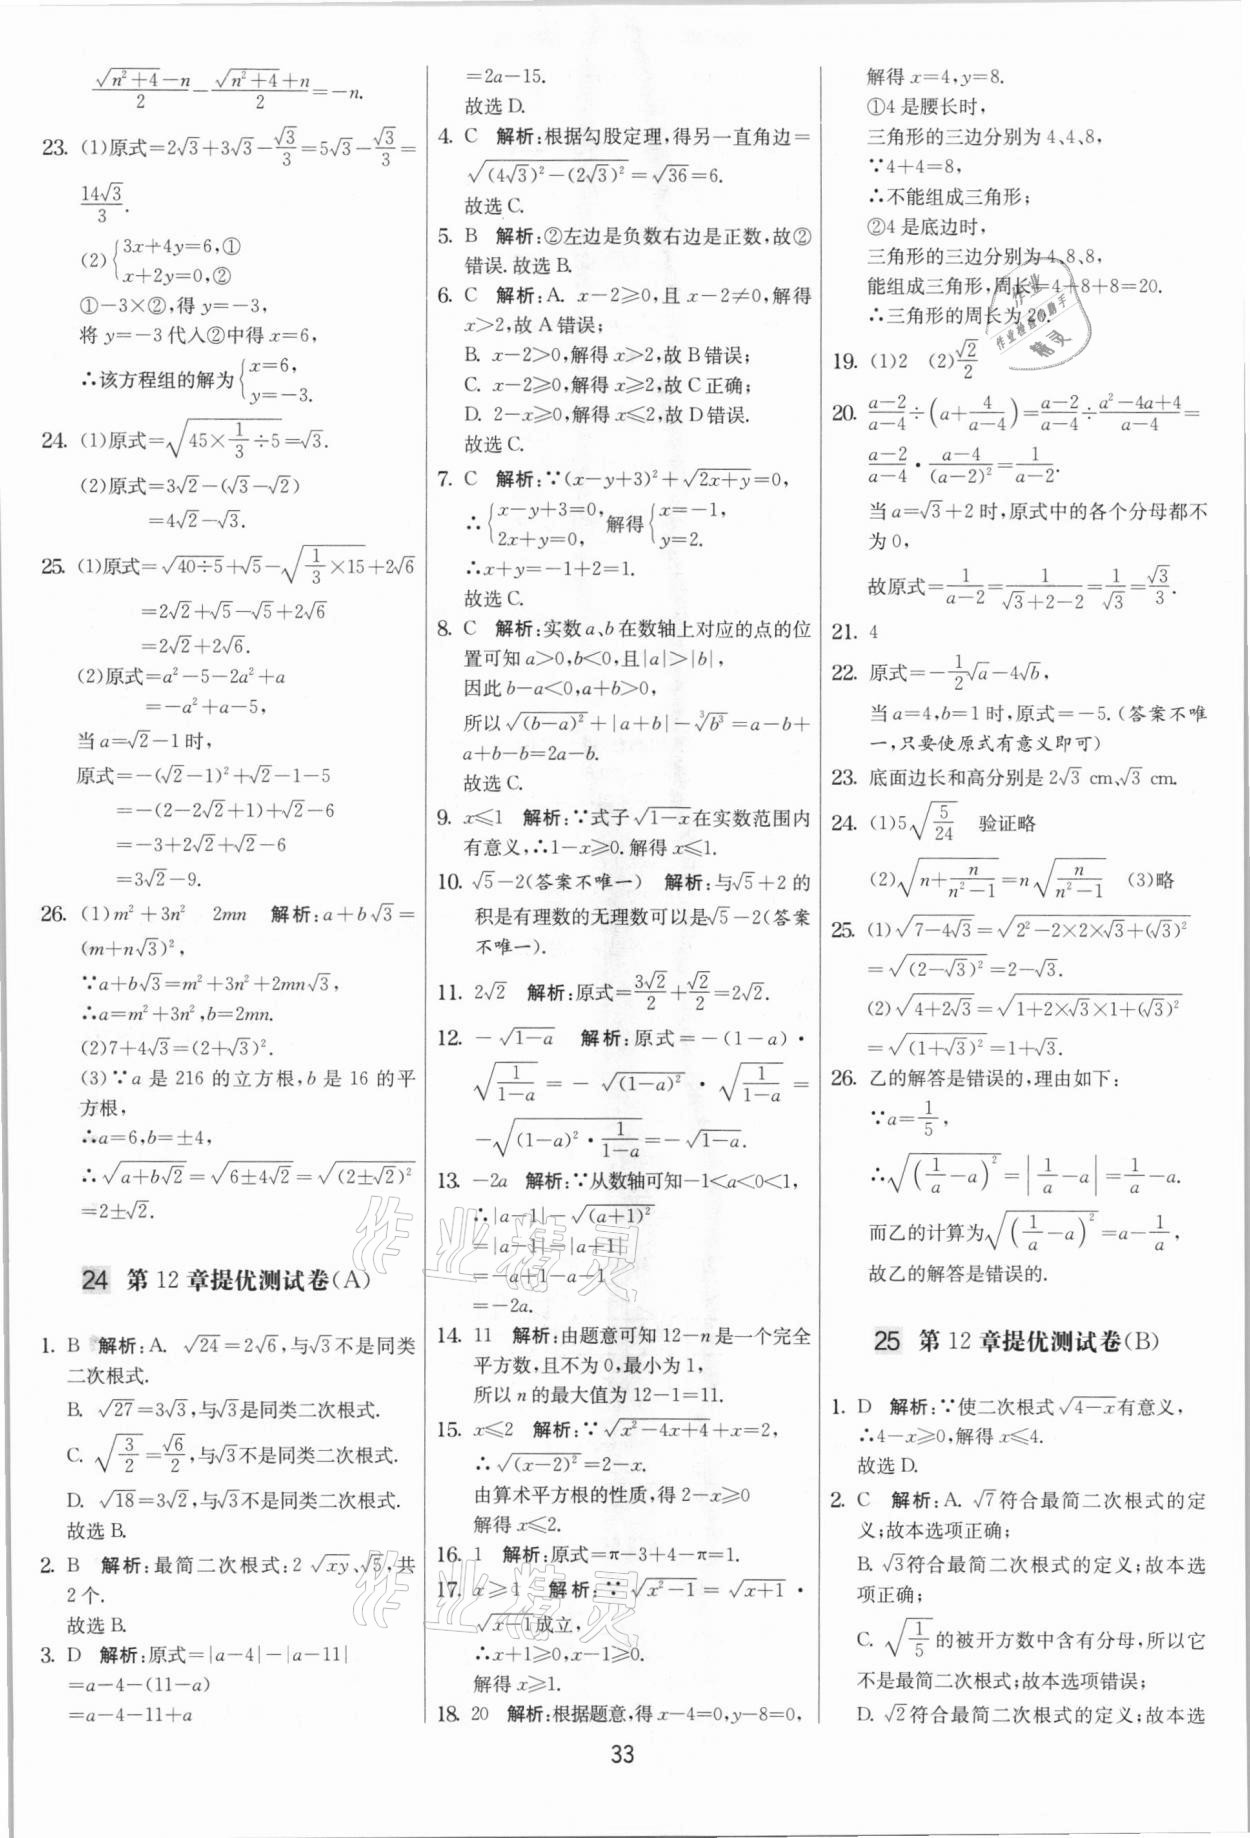 (√(n²+4)−n)/2−(√(n²+4)+n)/2=−n.
23. (1)原式=2√3+3√3−√3/3=5√3−√3/3=
14√3/3.
(2){3x+4y=6,①
x+2y=0,②
①−3×②,得 y=−3,
将 y=−3代入②中得 x=6,
∴该方程组的解为{x=6,
y=−3.
24. (1)原式=√(45×1/3÷5)=√3.
(2)原式=3√2−(√3−√2)
=4√2−√3.
25. (1)原式=√(40÷5)+√5−√(1/3×15)+2√6
=2√2+√5−√5+2√6
=2√2+2√6.
(2)原式=a²−5−2a²+a
=−a²+a−5,
当a=√2−1时,
原式=−(√2−1)²+√2−1−5
=−(2−2√2+1)+√2−6
=−3+2√2+√2−6
=3√2−9.
26. (1)m²+3n² 2mn 解析:a+b√3=
(m+n√3)²,
∵a+b√3=m²+3n²+2mn√3,
∴a=m²+3n²,b=2mn.
(2)7+4√3=(2+√3)².
(3)∵a 是 216 的立方根,b 是 16 的平
方根,
∴a=6,b=±4,
∴√(a+b√2)=√(6±4√2)=√(2±√2)²
=2±√2.
24 第 12 章提优测试卷(A)
1. B 解析:A. √24=2√6,与√3不是同类
二次根式.
B. √27=3√3,与√3是同类二次根式.
C. √(3/2)=√6/2,与√3不是同类二次根式.
D. √18=3√2,与√3不是同类二次根式.
故选 B.
2. B 解析:最简二次根式:2√xy、√5,共
2个.
故选 B.
3. D 解析:原式=|a−4|−|a−11|
=a−4−(11−a)
=a−4−11+a
=2a−15.
故选 D.
4. C 解析:根据勾股定理,得另一直角边=
√((4√3)²−(2√3)²)=√36=6.
故选 C.
5. B 解析:②左边是负数右边是正数,故②
错误.故选 B.
6. C 解析:A. x−2⩾0,且 x−2≠0,解得
x>2,故 A 错误;
B. x−2>0,解得 x>2,故 B 错误;
C. x−2⩾0,解得 x⩾2,故 C 正确;
D. 2−x⩾0,解得 x⩽2,故 D 错误.
故选 C.
7. C 解析:∵(x−y+3)²+√(2x+y)=0,
∴{x−y+3=0, 解得{x=−1,
2x+y=0, y=2.
∴x+y=−1+2=1.
故选 C.
8. C 解析:实数a、b在数轴上对应的点的位
置可知 a>0,b<0,且|a|>|b|,
因此 b−a<0,a+b>0,
所以√(b−a)²+|a+b|−∛b³=a−b+
a+b−b=2a−b.
故选 C.
9. x⩽1 解析:∵式子√(1−x)在实数范围内
有意义,∴1−x⩾0.解得 x⩽1.
10. √5−2(答案不唯一) 解析:与√5+2的
积是有理数的无理数可以是√5−2(答案
不唯一).
11. 2√2 解析:原式=3√2/2+√2/2=2√2.
12. −√(1−a) 解析:原式=−(1−a)·
√(1/(1−a))=−√(1−a)²·√(1/(1−a))=
−√((1−a)²·1/(1−a))=−√(1−a).
13. −2a 解析:∵从数轴可知−1<a<0<1,
∴|a−1|−√(a+1)²
=|a−1|−|a+1|
=−a+1−a−1
=−2a.
14. 11 解析:由题意可知 12−n 是一个完全
平方数,且不为 0,最小为 1,
所以 n 的最大值为 12−1=11.
15. x⩽2 解析:∵√(x²−4x+4)+x=2,
∴√(x−2)²=2−x.
由算术平方根的性质,得 2−x⩾0
解得 x⩽2.
16. 1 解析:原式=π−3+4−π=1.
17. x⩾1 解析:∵√(x²−1)=√(x+1)·
√(x−1)成立,
∴x+1⩾0,x−1⩾0.
解得 x⩾1.
18. 20 解析:根据题意,得 x−4=0,y−8=0,
解得 x=4,y=8.
①4 是腰长时,
三角形的三边分别为 4、4、8,
∵4+4=8,
∴不能组成三角形;
②4 是底边时,
三角形的三边分别为 4、8、8,
能组成三角形,周长=4+8+8=20.
∴三角形的周长为 20.
19. (1)2 (2)√2/2
20. (a−2)/(a−4)÷(a+4/(a−4))=(a−2)/(a−4)÷(a²−4a+4)/(a−4)=
(a−2)/(a−4)·(a−4)/(a−2)²=1/(a−2).
当a=√3+2时,原式中的各个分母都不
为 0,
故原式=1/(a−2)=1/(√3+2−2)=1/√3=√3/3.
21. 4
22. 原式=−1/2√a−4√b,
当a=4,b=1时,原式=−5.(答案不唯
一,只要使原式有意义即可)
23. 底面边长和高分别是 2√3 cm、√3 cm.
24. (1)5√(5/24) 验证略
(2)√(n+n/(n²−1))=n√(n/(n²−1)) (3)略
25. (1)√(7−4√3)=√(2²−2×2×√3+(√3)²)
=√(2−√3)²=2−√3.
(2)√(4+2√3)=√(1+2×√3×1+(√3)²)
=√(1+√3)²=1+√3.
26. 乙的解答是错误的,理由如下:
∵a=1/5,
∴√(1/a−a)²=|1/a−a|=1/a−a.
而乙的计算为√(1/a−a)²=a−1/a,
故乙的解答是错误的.
25 第 12 章提优测试卷(B)
1. D 解析:∵使二次根式√(4−x)有意义,
∴4−x⩾0,解得 x⩽4.
故选 D.
2. C 解析:A. √7符合最简二次根式的定
义;故本选项正确;
B. √3符合最简二次根式的定义;故本选
项正确;
C. √(1/5)的被开方数中含有分母,所以它
不是最简二次根式;故本选项错误;
D. √2符合最简二次根式的定义;故本选
33
作业精灵
作业精灵
作业
作业检查小助手
精灵